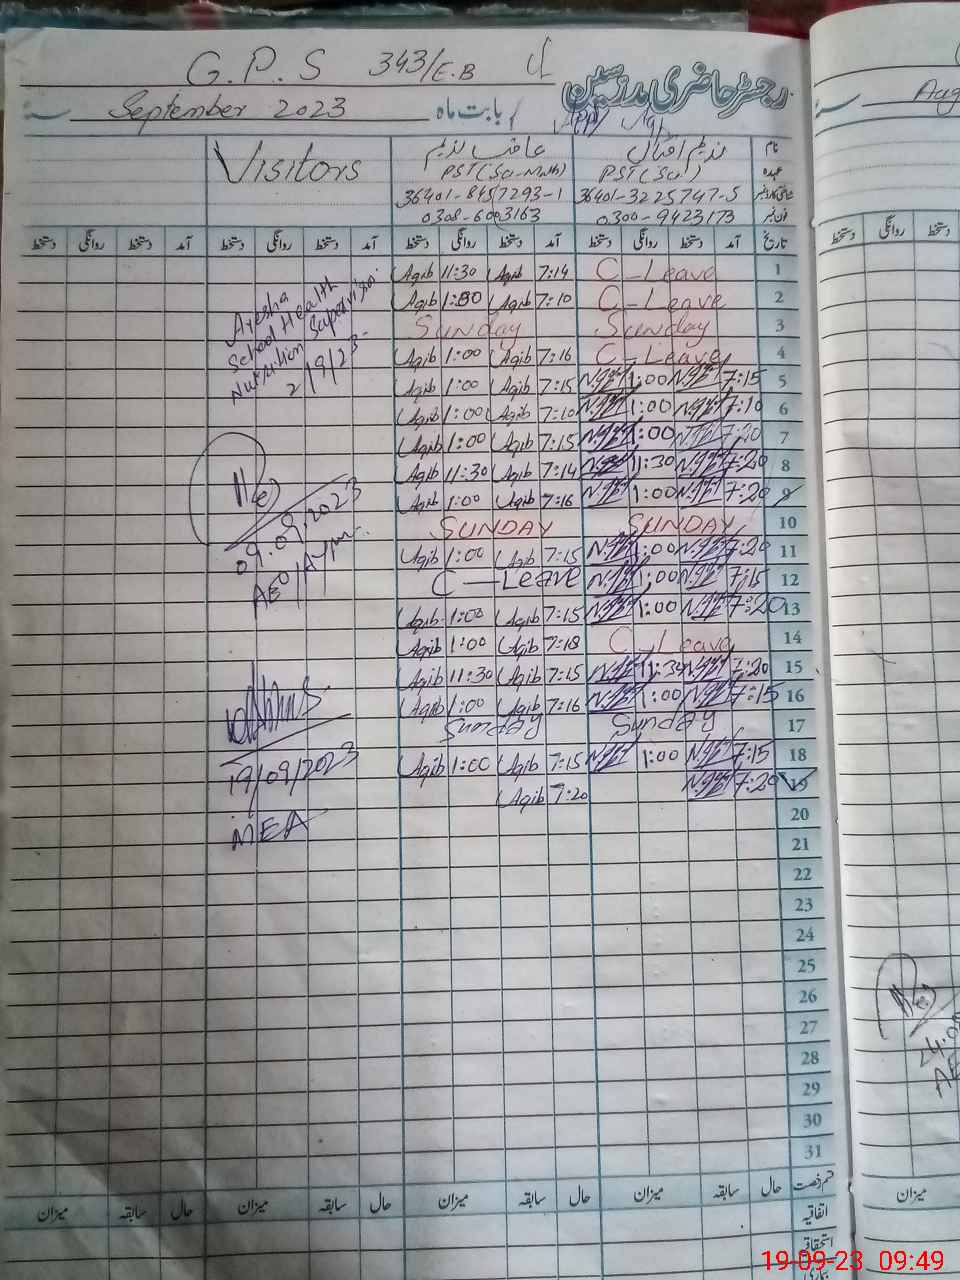 G.P.S 343/E.B
رجسٹر حاضری مدرسین
September 2023 بابت ماہ
نام ندیم اقبال عاقب ندیم Visitors
عہدہ PST (Sci) PST (Sci-Math)
36401-3225747-5 36401-8457293-1
فون نمبر 0300-9423173 0308-6003163
تاریخ آمد دستخط روانگی دستخط آمد دستخط روانگی دستخط آمد دستخط روانگی دستخط آمد دستخط روانگی دستخط
1 C-Leave 7:14 Aqib 11:30 Aqib
2 C-Leave 7:10 Aqib Aqib
3 Sunday Sunday
4 C-Leave 7:16 Aqib 1:00 Aqib
5 7:15 1:00 7:15 Aqib 1:00 Aqib
6 7:10 1:00 7:10 Aqib 1:00 Aqib
7 7:20 1:00 7:15 Aqib 1:00 Aqib
8 7:20 11:30 7:14 Aqib 11:30 Aqib
9 7:20 1:00 7:16 Aqib 1:00 Aqib
10 SUNDAY SUNDAY
11 7:20 1:00 7:15 Aqib 1:00 Aqib
12 7:15 1:00 C-Leave
13 7:20 1:00 7:15 Aqib 1:00 Aqib
14 C-Leave 7:18 Aqib 1:00 Aqib
15 7:20 7:15 Aqib 11:30 Aqib
16 7:15 1:00 7:16 Aqib 1:00 Aqib
17 Sunday Sunday
18 7:15 1:00 7:15 Aqib 1:00 Aqib
19 7:20 7:20 Aqib
20
21
22
23
24
25
26
27
28
29
30
31
Ayesha
School Health
Nutrition Supervisor
2/9/23
09.09.2023
AEO
19/09/2023
MEA
قسم رخصت حال سابقہ میزان حال سابقہ میزان حال سابقہ میزان حال سابقہ میزان
اتفاقیہ
استحقاقی
Aug
دستخط روانگی دستخط
میزان
19-09-23 09:49